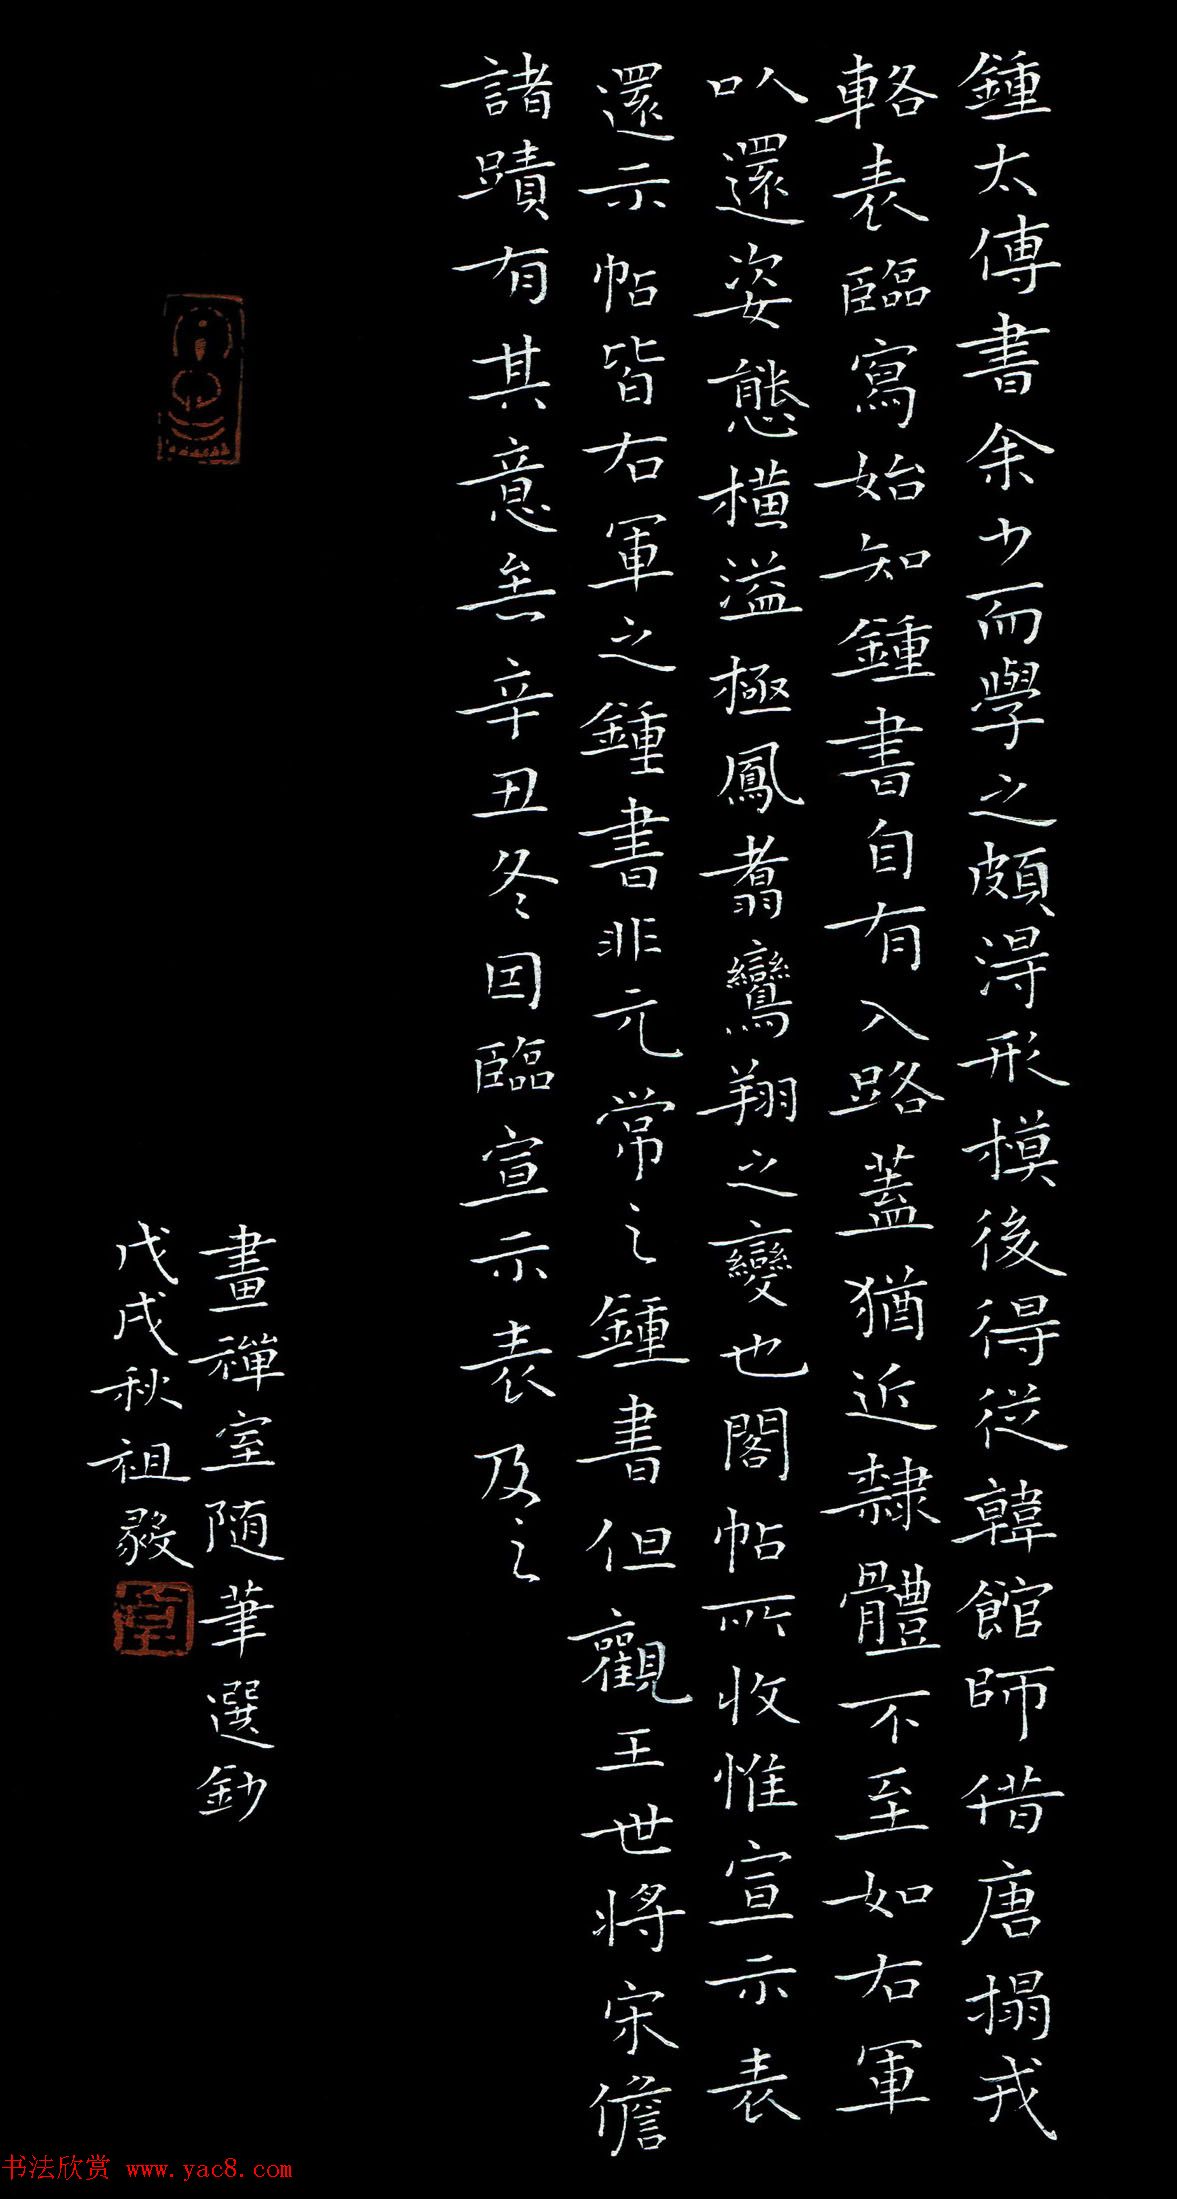 鍾太傅書余少而學之頗淂形模後得從韓館師借唐搨戎
輅表臨寫始知鍾書自有入路蓋猶近隸體不至如右軍
㕥還姿態橫溢極鳳翥鸞翔之變也閣帖所收惟宣示表
還示帖皆右軍之鍾書非元常之鍾書但觀王世將宋儋
諸蹟有其意矣辛丑冬因臨宣示表及之
畫禪室随筆選鈔
戊戌秋祖毅
书法欣赏 www.yac8.com